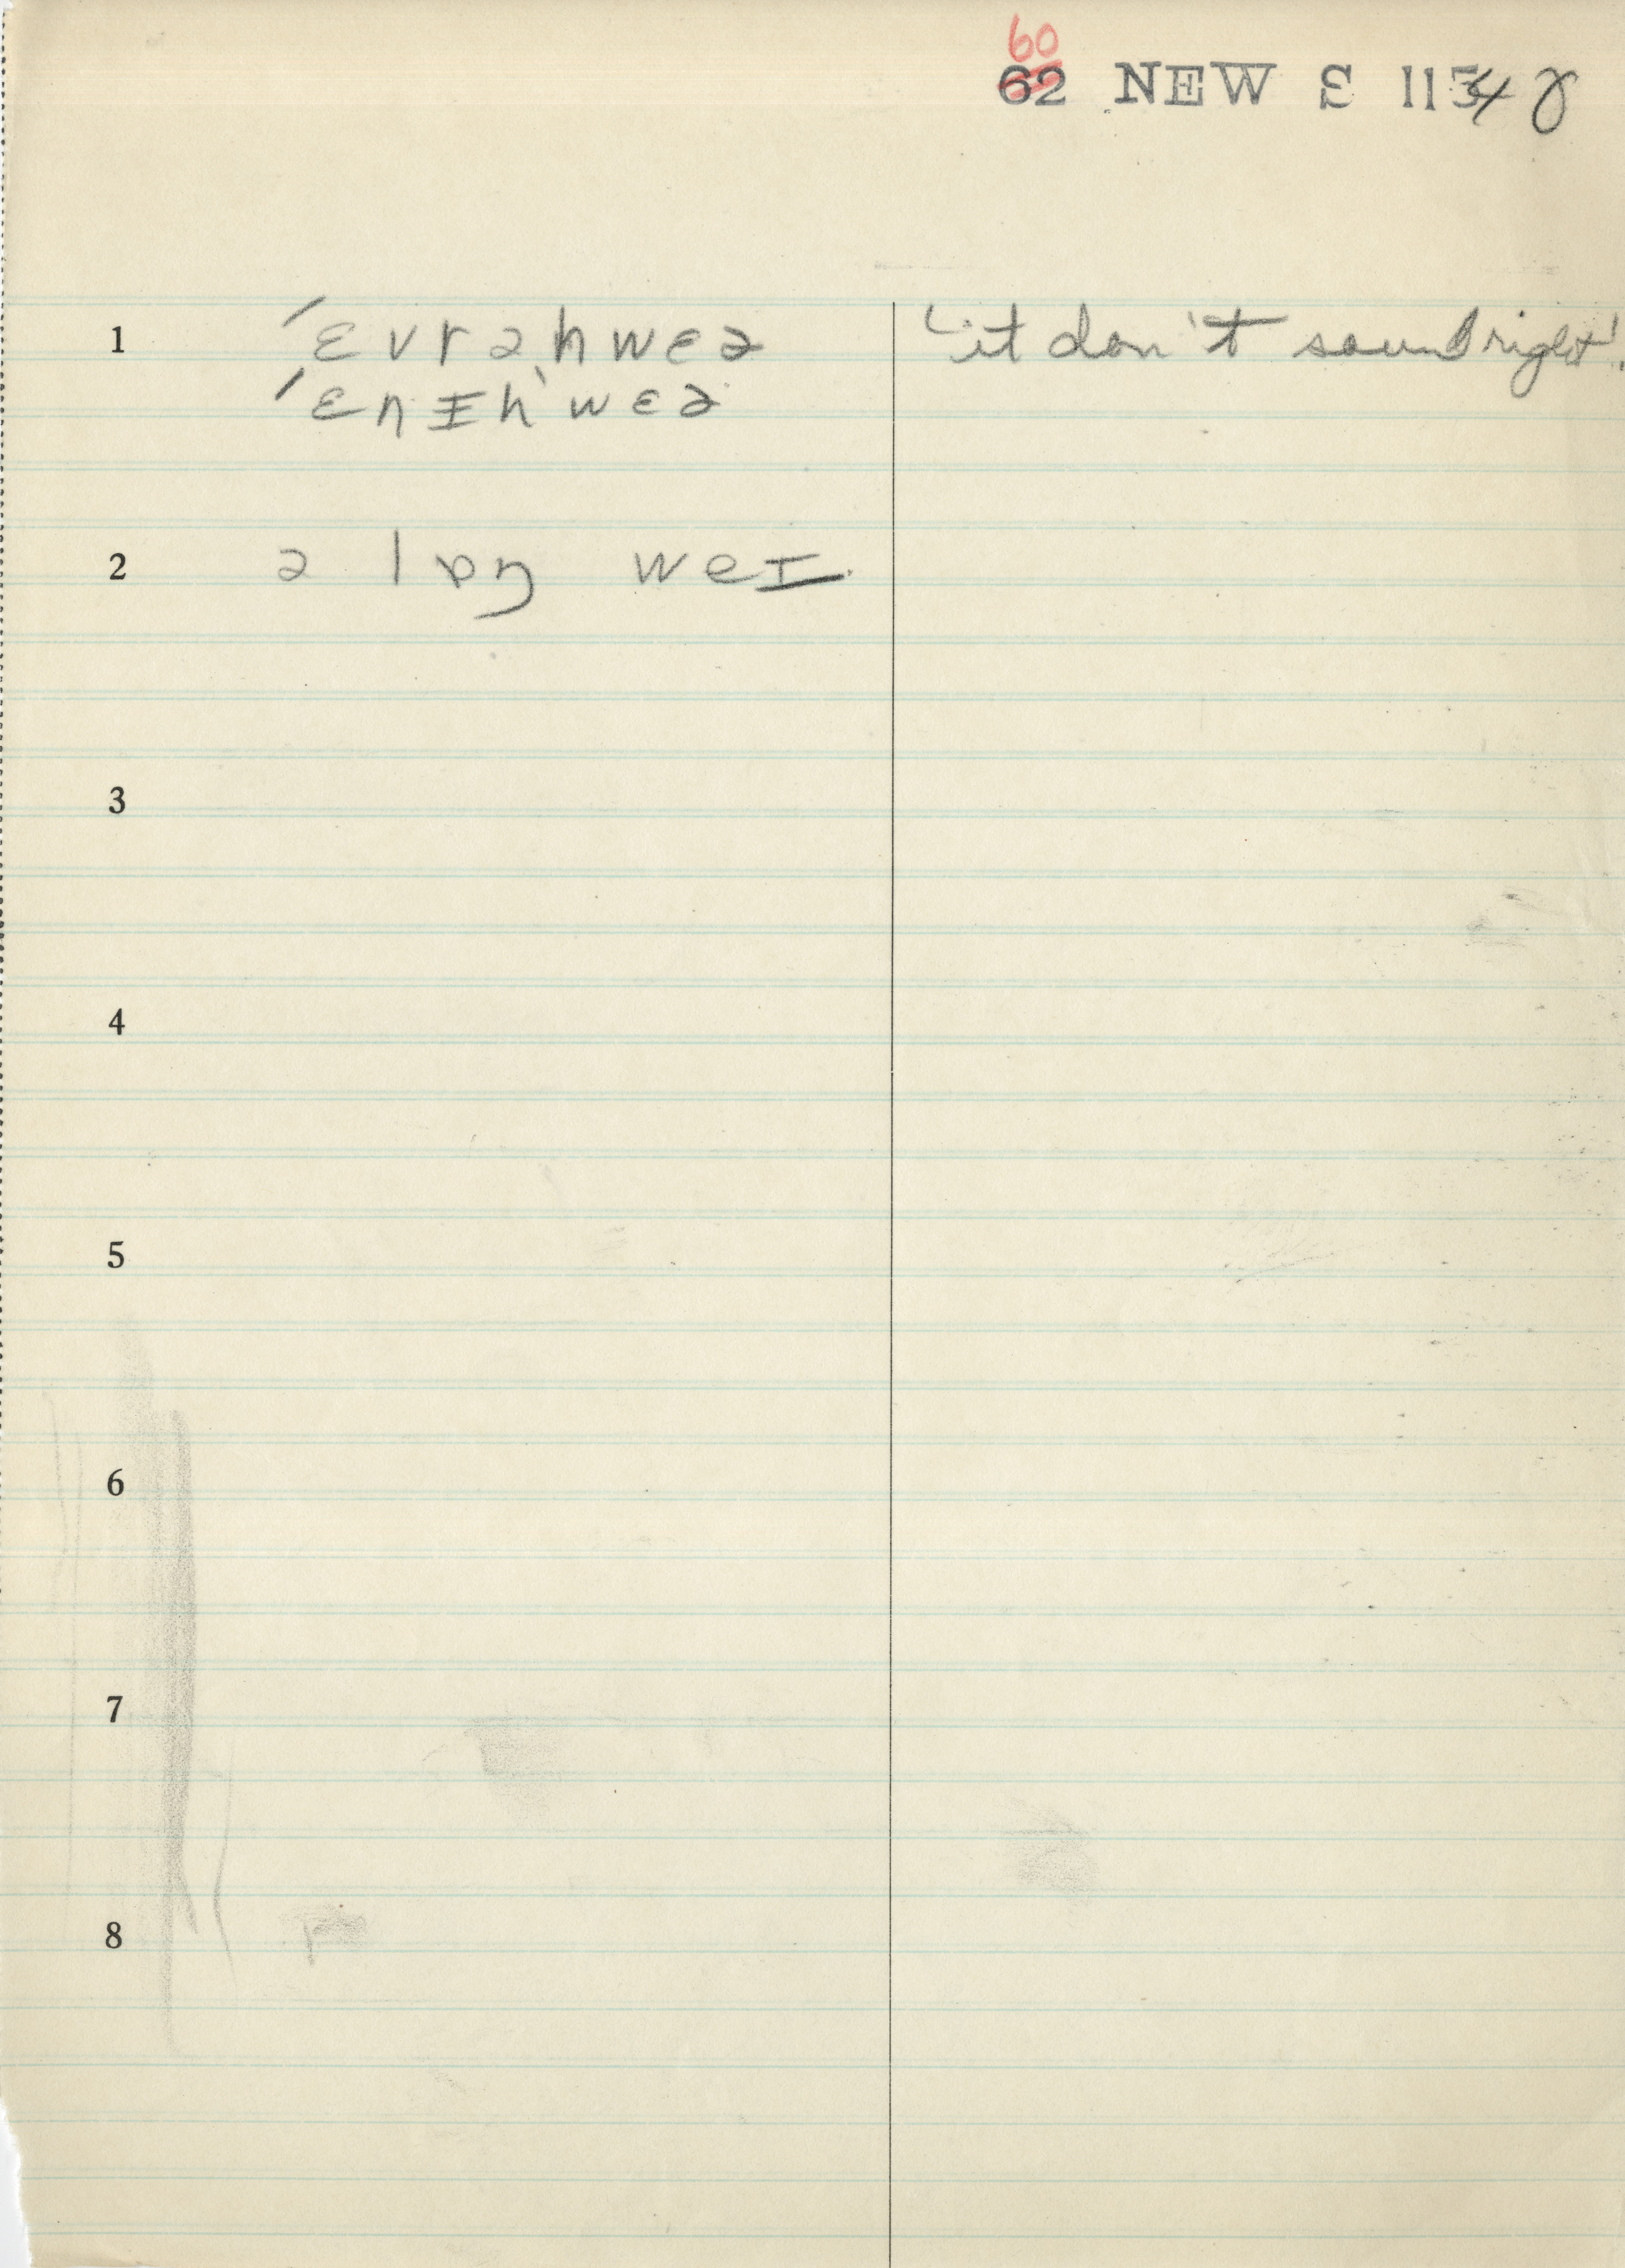 60
62 NEW S 1154 γ
1 ˈɛvrəhwɛə 'it don't sound right'.
ˈɛnɪhwɛə
2 ə lɒŋ weɪ
3
4
5
6
7
8